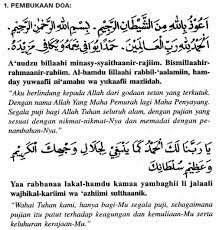 1. PEMBUKAAN DOA:
اَعُوْذُ بِاللهِ مِنَ الشَّيْطَانِ الرَّجِيْمِ. بِسْمِ اللهِ الرَّحْمٰنِ الرَّحِيْمِ.
اَلْحَمْدُ لِلّٰهِ رَبِّ الْعَالَمِيْنَ. حَمْدًا يُوَافِى نِعَمَهُ وَيُكَافِئُ مَزِيْدَهُ
A'uudzu billaahi minasy-syaithaanir-rajiim. Bismillaahir-
rahmaanir-rahiim. Al-hamdu lillaahi rabbil-'aalamiin, ham-
day yuwaafii ni'amahu wa yukaafii maziidah.
"Aku berlindung kepada Allah dari godaan setan yang terkutuk.
Dengan nama Allah Yang Maha Pemurah lagi Maha Penyayang.
Segala puji bagi Allah Tuhan seluruh alam, dengan pujian yang
sesuai dengan nikmat-nikmat-Nya dan memadai dengan pe-
nambahan-Nya."
يَا رَبَّنَا لَكَ الْحَمْدُ كَمَا يَنْبَغِى لِجَلَالِ وَجْهِكَ الْكَرِيْمِ
وَعَظِيْمِ سُلْطَانِكَ
Yaa rabbanaa lakal-hamdu kamaa yambaghii li jalaali
wajhikal-kariimi wa 'azhiimi sulthaanik.
"Wahai Tuhan kami, hanya bagi-Mu segala puji, sebagaimana
pujian itu patut terhadap keagungan dan kemuliaan-Mu serta
keluhuran kerajaan-Mu."